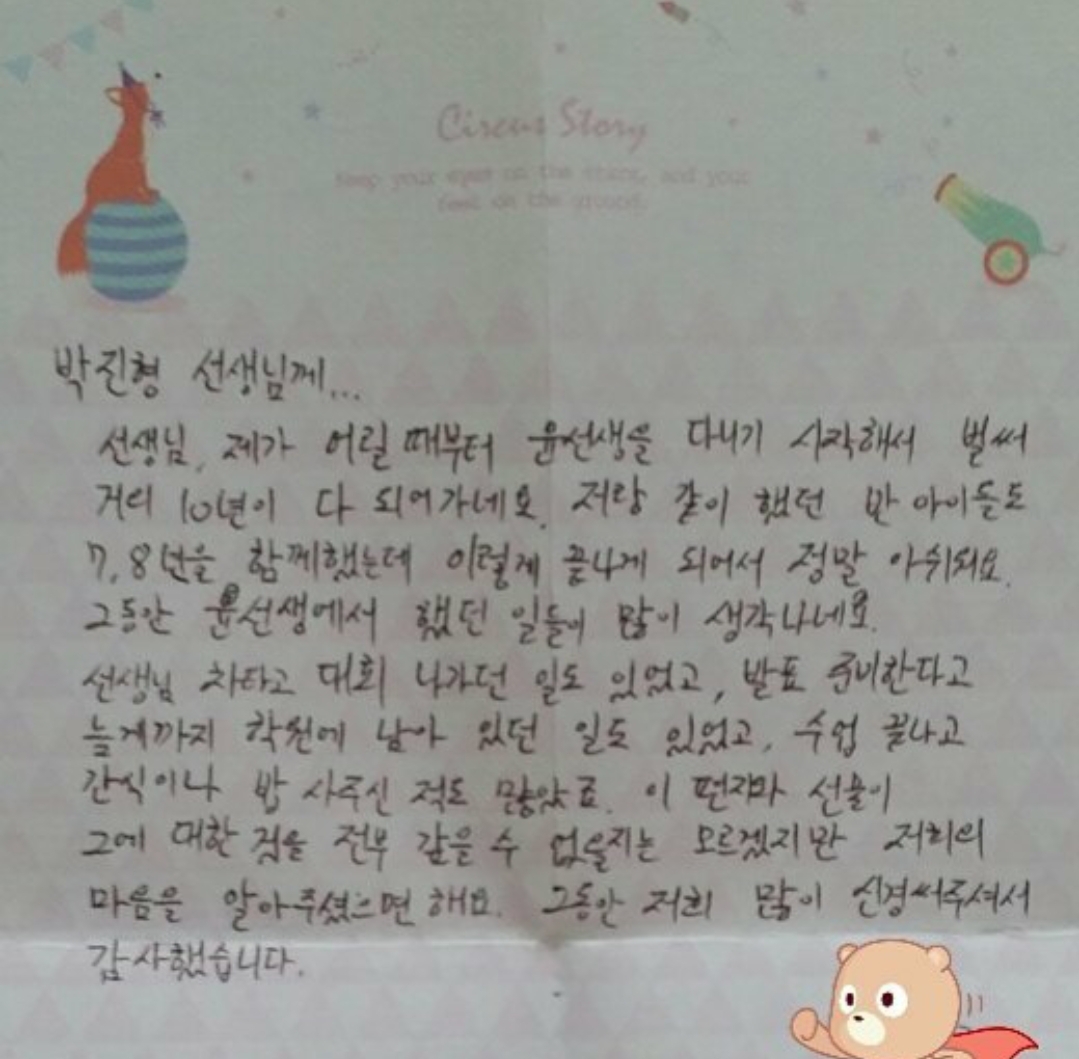 Circus Story
keep your eyes on the stars, and your
feet on the ground.
박진형 선생님께...
선생님, 제가 어릴 때부터 윤선생을 다니기 시작해서 벌써
거의 10년이 다 되어가네요. 저랑 같이 했던 반 아이들도
7, 8년을 함께했는데 이렇게 끝나게 되어서 정말 아쉬워요.
그동안 윤선생에서 했던 일들이 많이 생각나네요.
선생님 차타고 대회 나가던 일도 있었고, 발표 준비한다고
늦게까지 학원에 남아 있던 일도 있었고, 수업 끝나고
간식이나 밥 사주신 적도 많았죠. 이 편지와 선물이
그에 대한 것을 전부 갚을 수 없을지는 모르겠지만 저희의
마음을 알아주셨으면 해요. 그동안 저희 많이 신경써주셔서
감사했습니다.